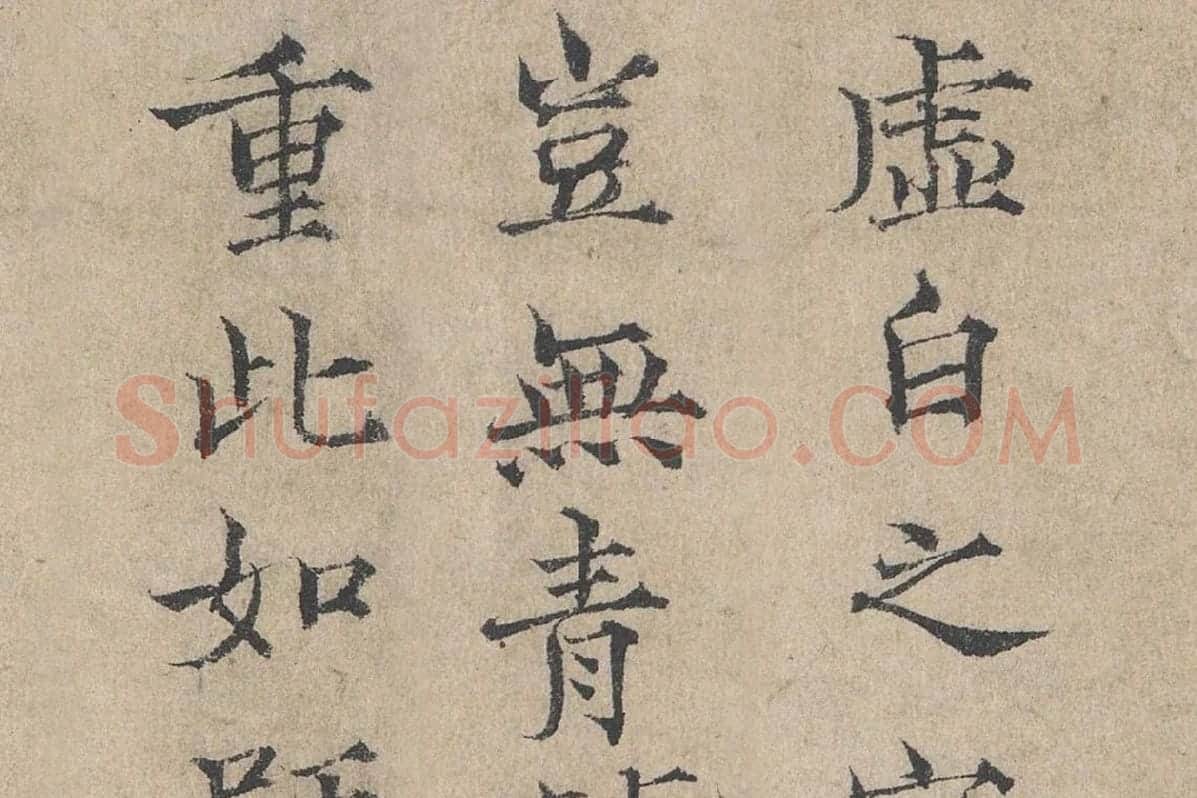 虛白之室
豈無青
重此如
Shufaziliao.COM